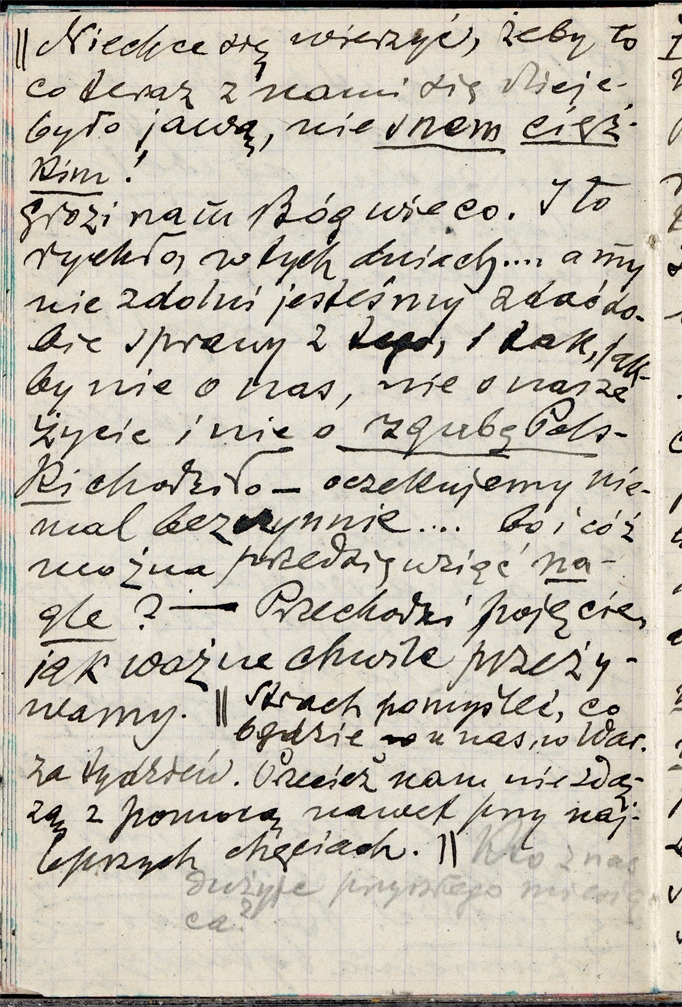 || Niechce się wierzyć, żeby to
co teraz z nami się dzieje
było jawą, nie snem cięż-
kim!
Grozi nam Bóg wie co. I to
rychło, w tych dniach.... a my
nie zdolni jesteśmy zdać so-
bie sprawy z tego, i tak, jak-
by nie o nas, nie o nasze
życie i nie o zgubę Pols-
ki chodziło — oczekujemy nie-
mal bezczynnie.... bo i cóż
można przedsięwziąć na-
gle? — Przechodzi pojęcie,
jak ważne chwile przeży-
wamy. || Strach pomyśleć, co
będzie u nas, w War.
za tydzień. Przecież nam nie zdą-
żą z pomocą nawet przy naj-
lepszych chęciach. || Kto z nas
dożyje przyszłego miesią-
ca?